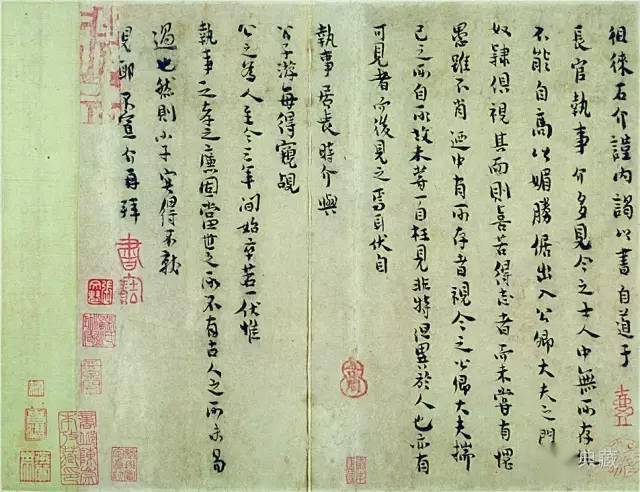 徂徠石介謹內謁以書自道于
長官執事介多見今之士人中無所存
不能自高以媚勝倨出入公卿大夫之門
奴隸俱視其面則喜若得志者而未嘗有愧
愚雖不肖迺中有所存者視今之公卿大夫揣
己之所自所故未嘗一目枉見非特詭異於人也亦有
可見者而後見之焉耳伏自
執事居長時介與
公子游每得竊覘
公之爲人至今三年間始卒若一伏惟
執事之孝之廉固當世之所不有古人之所未易
過也然則小子實得不就
見耶不宣介再拜
典藏